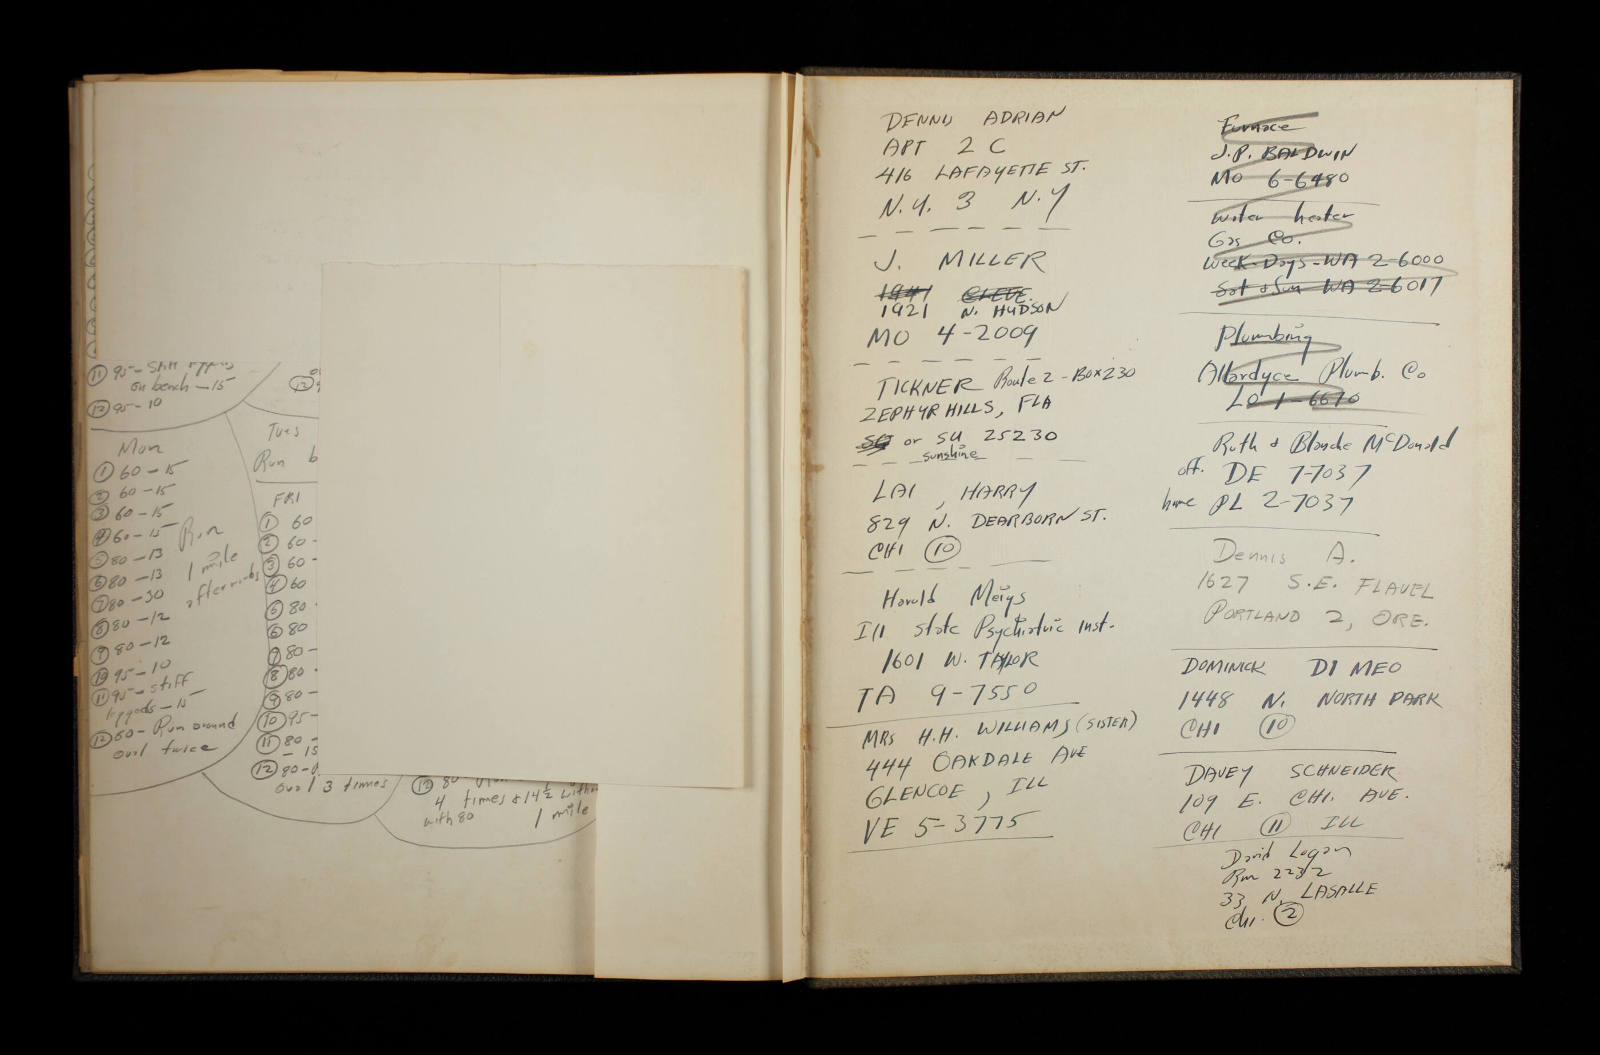 ⑪ 95 - Stiff
on bench - 15
⑫ 95 - 10
Mon
① 60 - 15
② 60 - 15
③ 60 - 15
④ 60 - 15
⑤ 80 - 13
⑥ 80 - 13
⑦ 80 - 30
⑧ 80 - 12
⑨ 80 - 12
⑩ 95 - 10
⑪ 95 - stiff
- 15
⑫ 60 - Run around
oval twice
Run
1 mile
⑫
Tues
Run b
FRI
① 60
② 60 -
③ 60 -
④ 60
⑤ 80
⑥ 80
⑦ 80 -
⑧ 80
⑨ 80 -
⑩ 95 -
⑪ 80 -
- 15
⑫ 80 -
oval 3 times
⑫ 80
4 times & 14½
with 80 1 mile
DENNU ADRIAN
APT 2 C
416 LAFAYETTE ST.
N.Y. 3 N.Y
J. MILLER
1941 CLEVE.
1921 N. HUDSON
MO 4-2009
TICKNER Route 2 - Box 230
ZEPHYR HILLS, FLA
or SU 25230
sunshine
LAI, HARRY
829 N. DEARBORN ST.
CHI ⑩
Harold Meigs
Ill State Psychiatric Inst.
1601 W. TAYLOR
TA 9-7550
MRS H.H. WILLIAMS (SISTER)
444 OAKDALE AVE
GLENCOE, ILL
VE 5-3775
Furnace
J.P. BALDWIN
MO 6-6480
Water heater
Gas Co.
Week-Days-WA 2-6000
Sat & Sun WA 2-6017
Plumbing
Allardyce Plumb. Co
LO 1-6670
Ruth & Blanche McDonald
off. DE 7-7037
home PL 2-7037
Dennis A.
1627 S.E. FLAVEL
PORTLAND 2, ORE.
DOMINICK DI MEO
1448 N. NORTH PARK
CHI ⑩
DAVEY SCHNEIDER
109 E. CHI. AVE.
CHI ⑪ ILL
David Logan
Rm 2232
33 N. LASALLE
Chi. ②